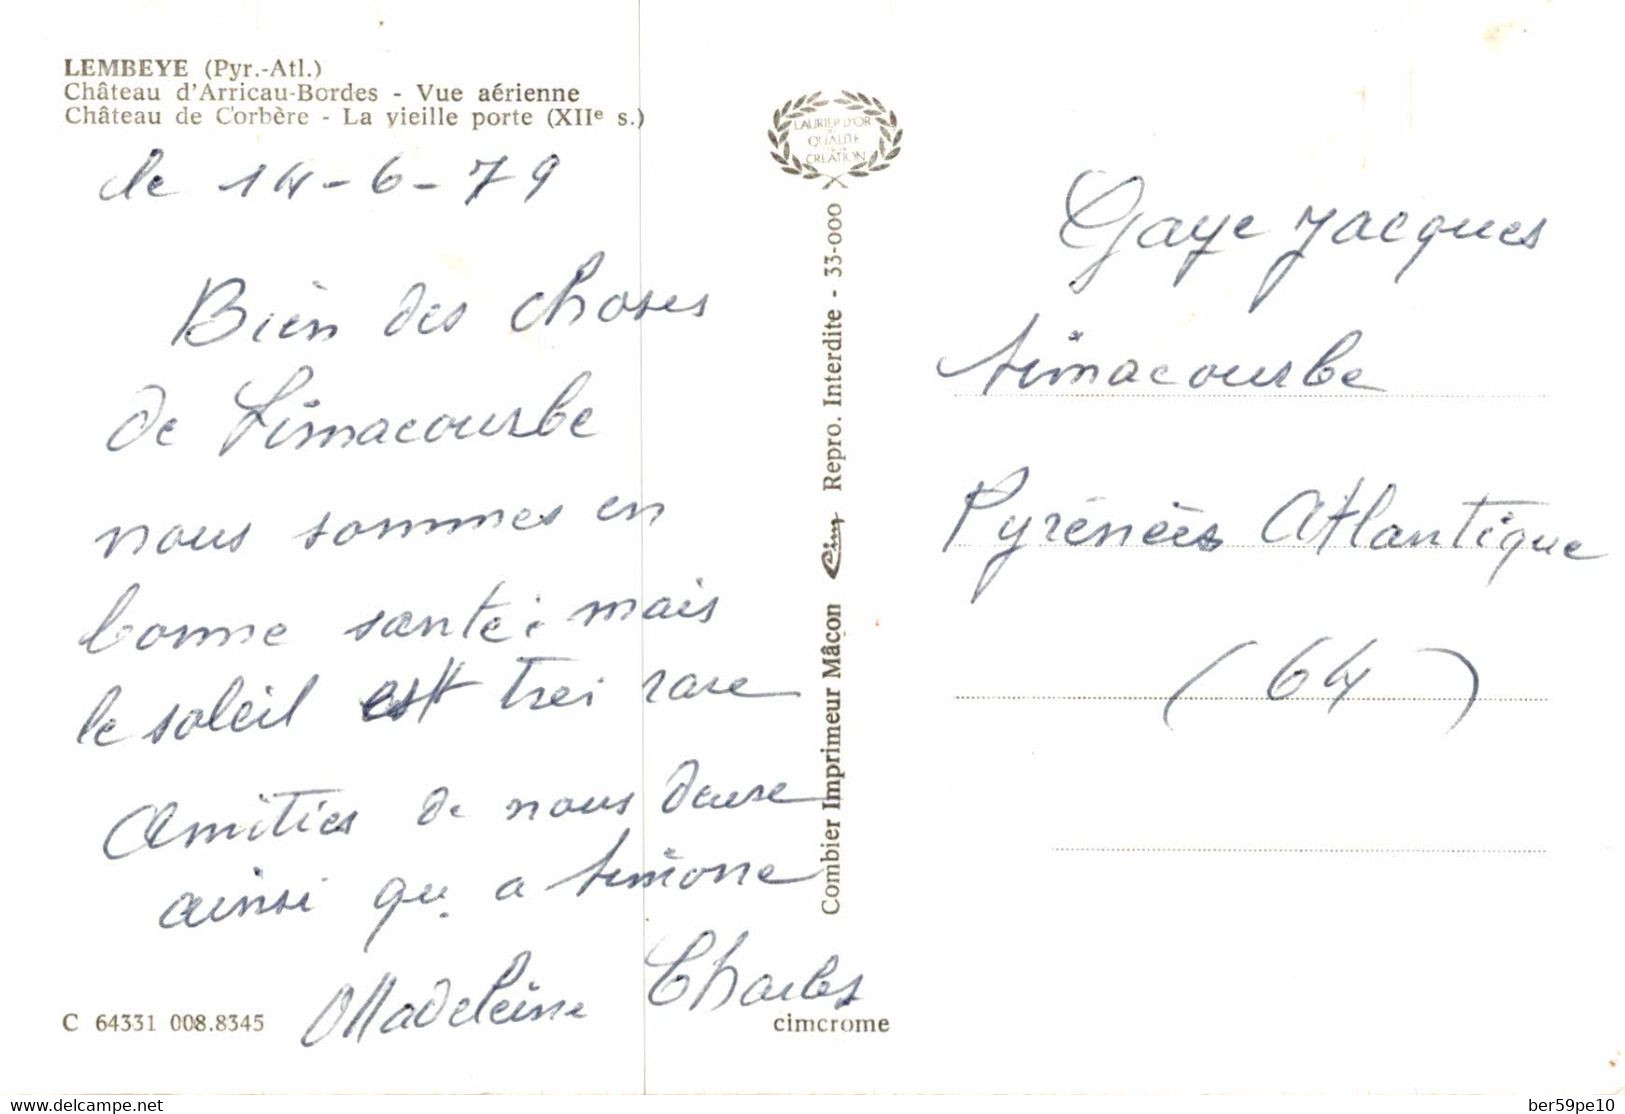 LEMBEYE (Pyr.-Atl.)
Château d'Arricau-Bordes - Vue aérienne
Château de Corbère - La vieille porte (XIIe s.)
le 14-6-79
Bien des choses
de Simacourbe
nous sommes en
bonne santé; mais
le soleil est trei rare
Amitiés de nous deux
ainsi qu a Simone
Madeleine Charles
C 64331 008.8345
cimcrome
LAURIER D'OR
QUALITE
CREATION
Combier Imprimeur Mâcon Cim Repro. Interdite - 33-000
Gaye Jacques
Simacourbe
Pyrénées Atlantique
(64)
delcampe.net
ber59pe10